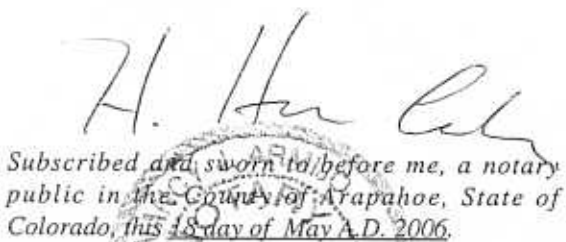 H.
Subscribed and sworn to before me, a notary
public in the County of Arapahoe, State of
Colorado, this 18 day of May A.D. 2006.